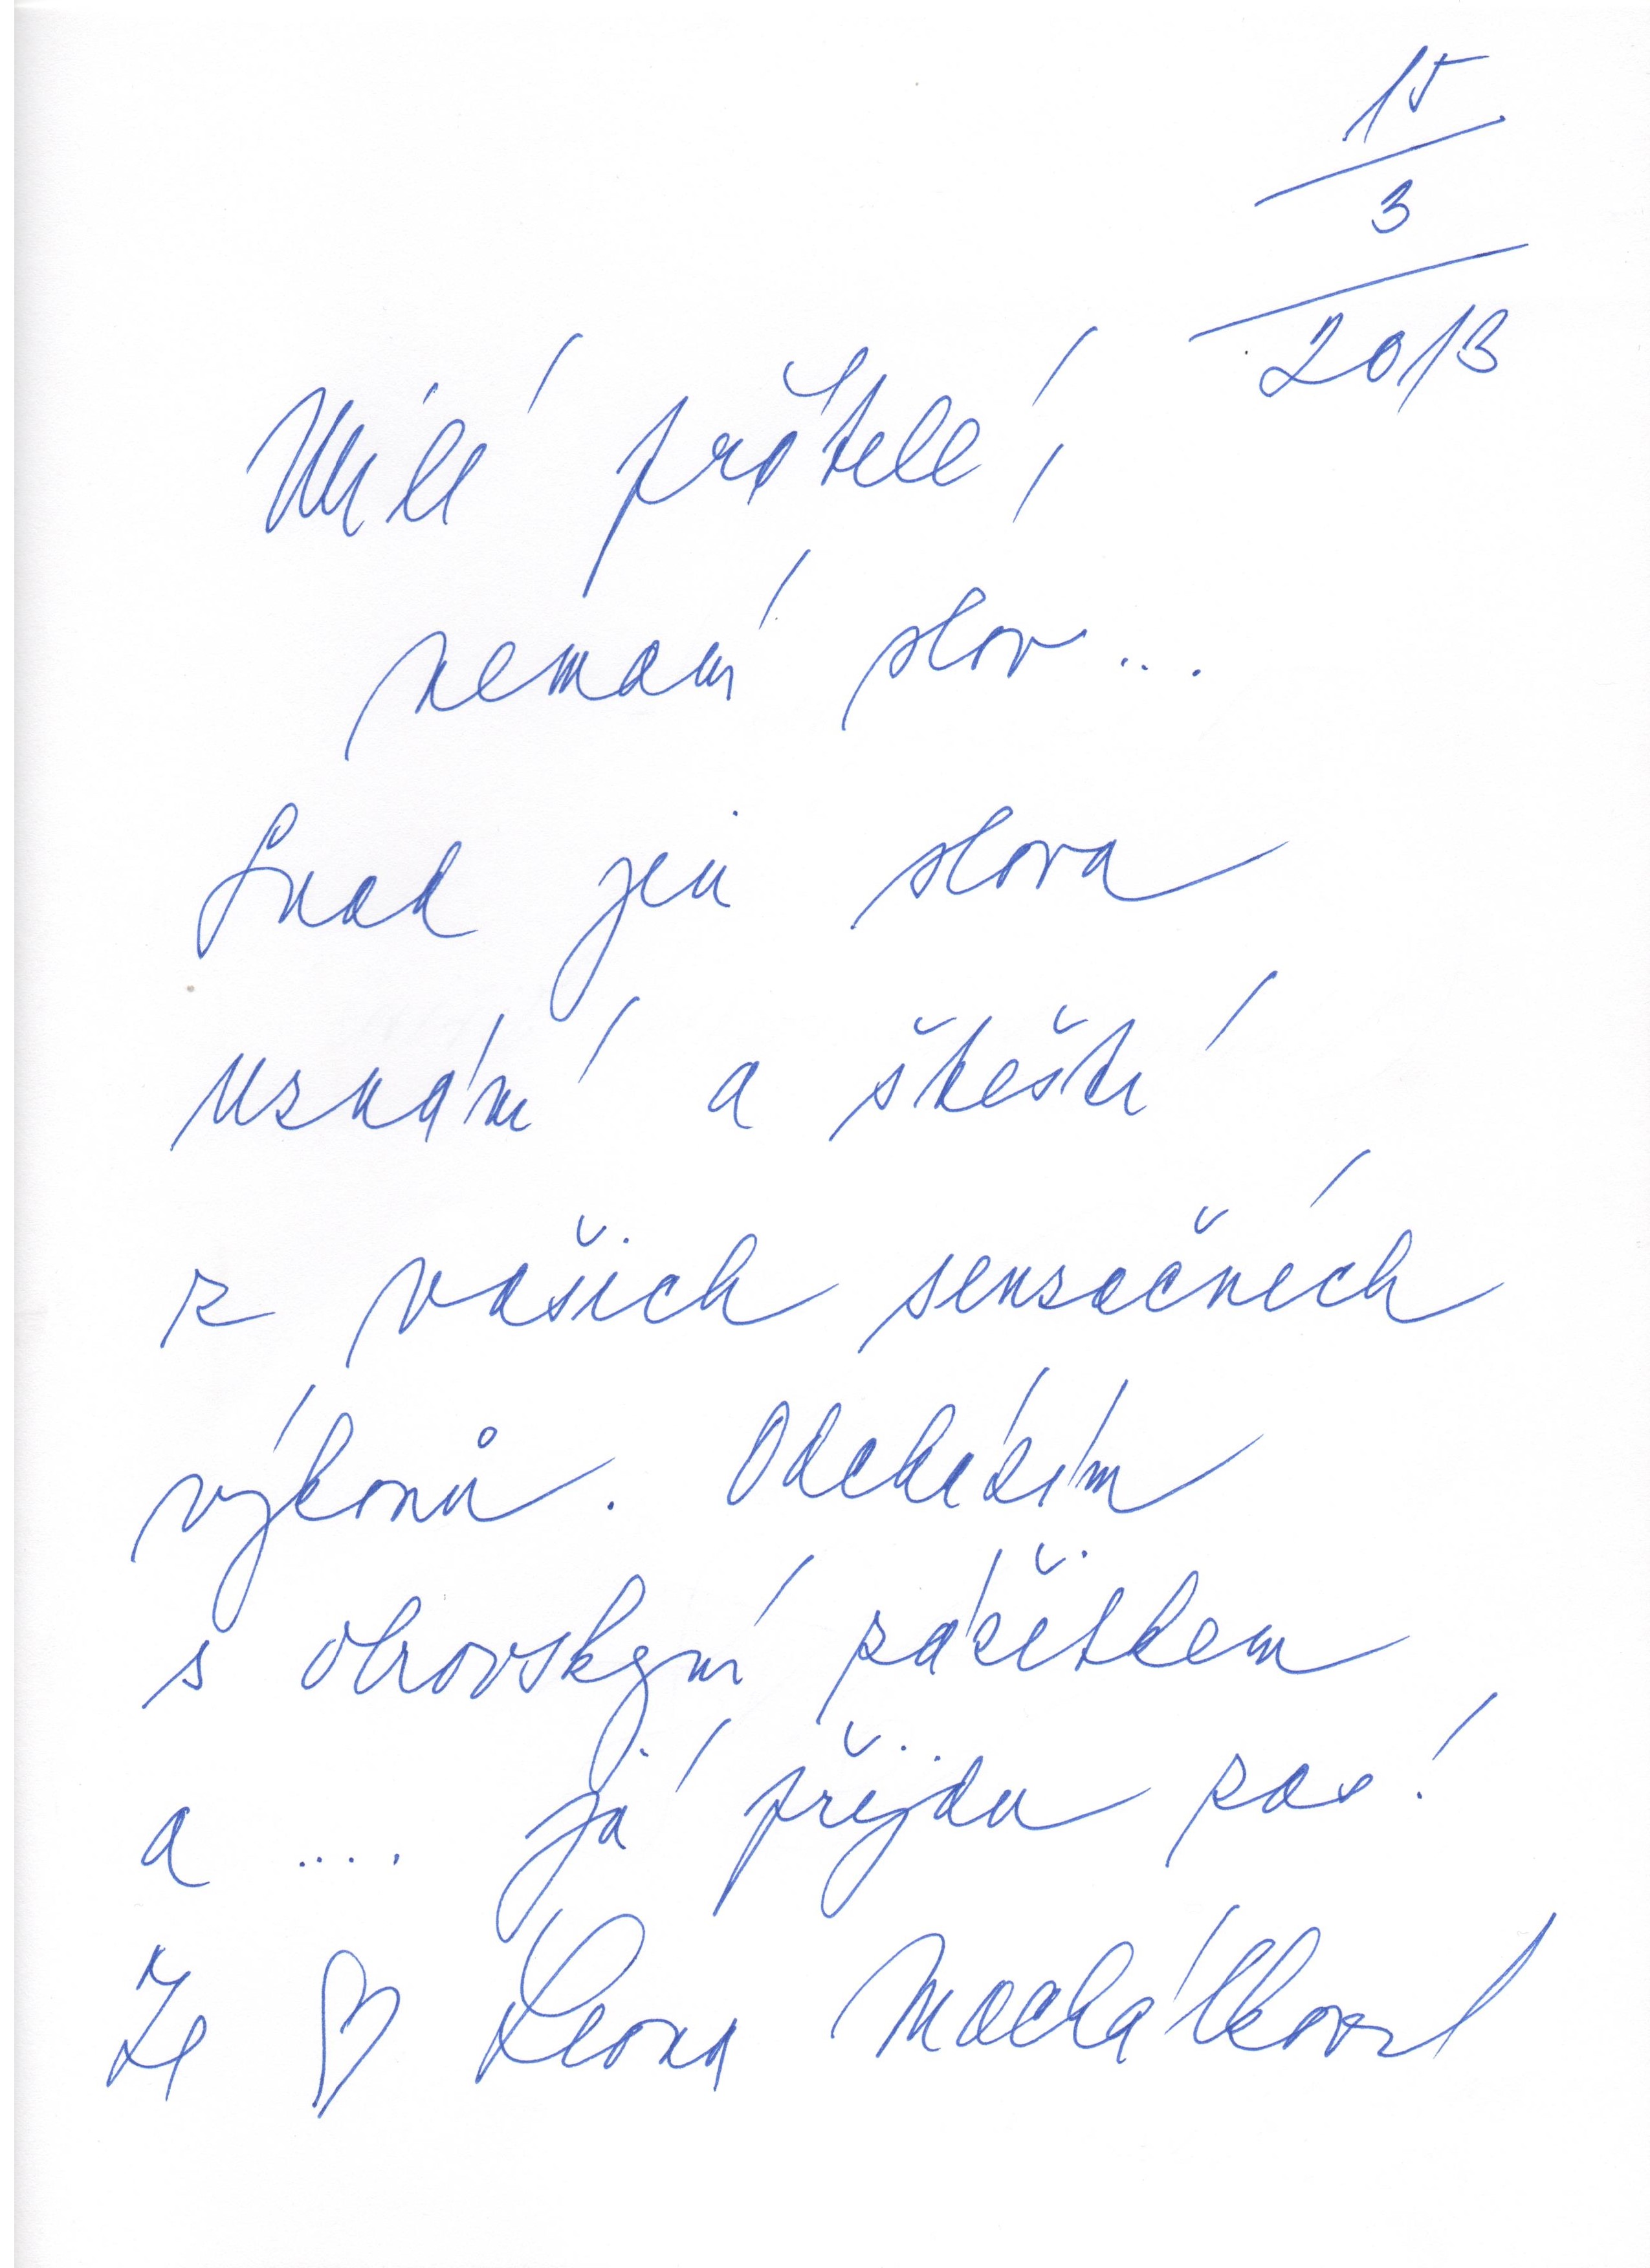 15
3
2013
Milí přátelé,
nemám slov ...
Snad jen slova
uznání a štěstí
z vašich sensačních
výkonů. Odcházím
s obrovským zážitkem
a .... Já přijdu zas!
Ze ♡ Leona Machálková